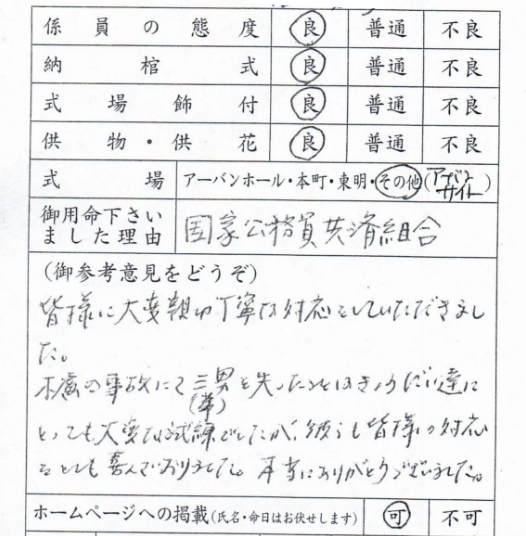 係員の態度 良 普通 不良
納棺式 良 普通 不良
式場飾付 良 普通 不良
供物・供花 良 普通 不良
式場 アーバンホール・本町・東明・その他(アーバンサイト)
御用命下さいました理由 国家公務員共済組合
(御参考意見をどうぞ)
皆様に大変親切丁寧な対応をしていただきまし
た。
不慮の事故にて三男(弟)を失ったことはきょうだい達に
とっても大変な試練でしたが、彼らも皆様の対応
をとても喜んでおりました。本当にありがとうございました。
ホームページへの掲載(氏名・命日はお伏せします) 可 不可